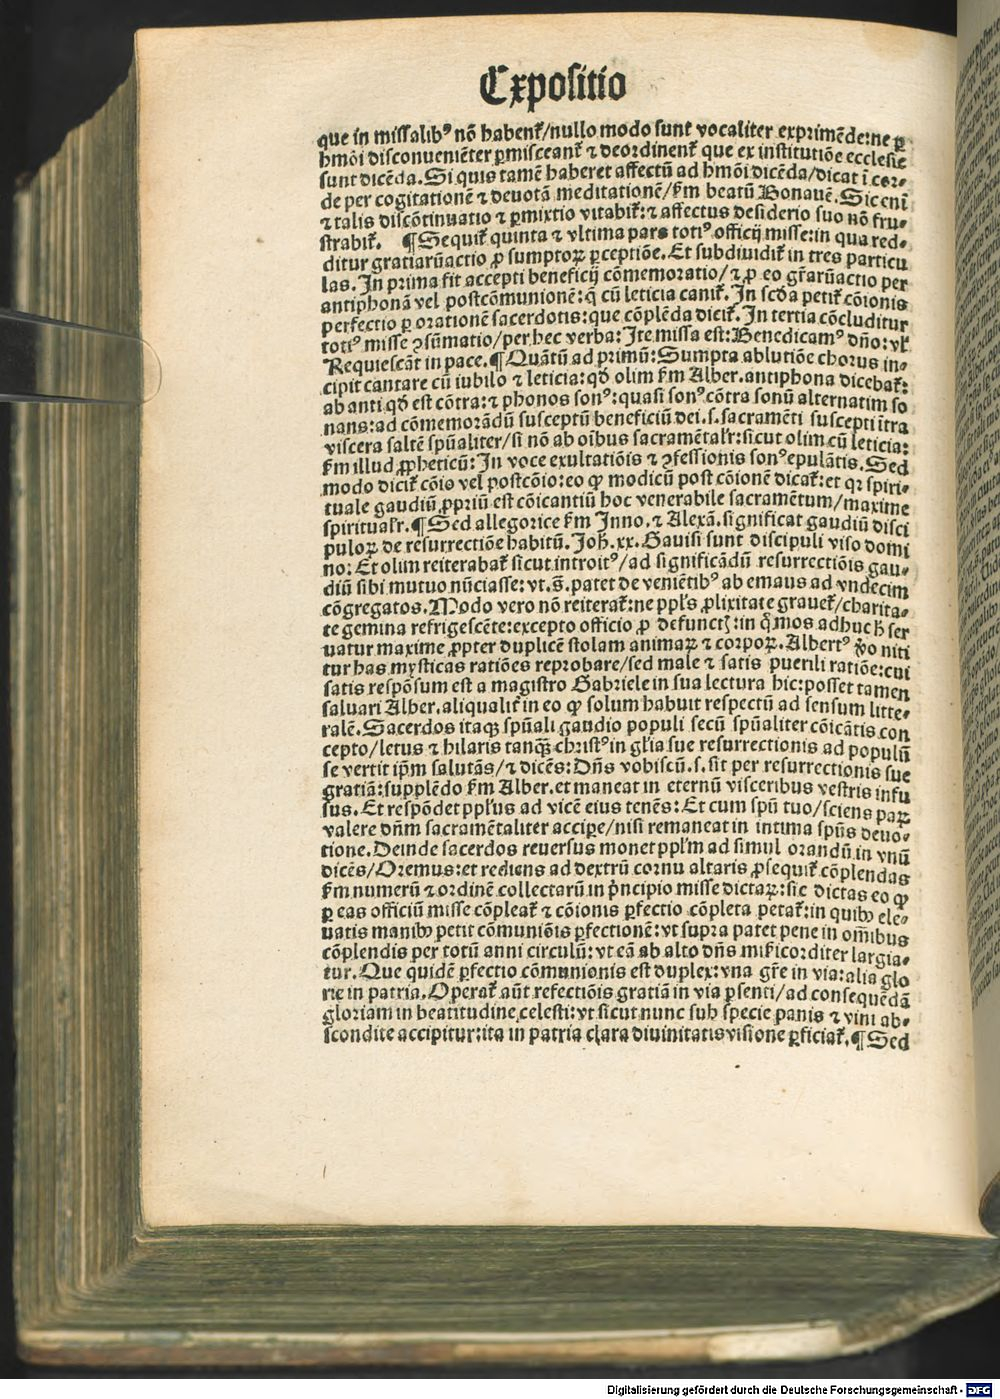 Expositio
que in missalibꝰ nō habent̄/nullo modo sunt vocaliter exprimēde:ne ꝑ
hmōi disconueniēter ꝑmisceant̄ ⁊ deordinent̄ que ex institutiōe ecclesie
sunt dicēda. Si quis tamē haberet affectū ad hmōi dicēda/dicat ī cor⸗
de per cogitationē ⁊ deuotā meditationē/ẜm beatū Bonauē. Sic enī
⁊ talis discōtinuatio ⁊ ꝑmixtio vitabit̄:⁊ affectus desiderio suo nō fru⸗
strabit̄. ¶Sequit̄ quinta ⁊ vltima pars totiꝰ officij misse:in qua red⸗
ditur gratiarūactio ꝓ sumptoꝝ ꝑceptiōe. Et subdiuidit̄ in tres particu
las. In prima fit accepti beneficij cōmemoratio/⁊ ꝓ eo gr̄arūactio per
antiphonā vel postcōmunionē:q̄ cū leticia canit̄. In scd̄a petit̄ cōionis
perfectio ꝑ orationē sacerdotis:que cōplēda dicit̄. In tertia cōcluditur
totiꝰ misse ꝯsūmatio/per hec verba: Ite missa est: Benedicamꝰ dn̄o:vl̄
Requiescāt in pace.¶Quātū ad primū: Sumpta ablutiōe chorus in⸗
cipit cantare cū iubilo ⁊ leticia: qd̄ olim ẜm Alber. antiphona dicebat̄:
ab anti qd̄ est cōtra:⁊ phonos sonꝰ: quasi sonꝰ cōtra sonū alternatim so
nans:ad cōmemorādū susceptū beneficiū dei.s. sacramēti suscepti ītra
viscera saltē spūaliter/si nō ab oībus sacramētal'r: sicut olim cū leticia:
ẜm illud ꝓpheticū: In voce exultatiōis ⁊ ꝯfessionis sonꝰ epulātis. Sed
modo dicit̄ cōis vel postcōio: eo ꝙ modicū post cōionē dicat̄: et qꝛ spiri⸗
tuale gaudiū ꝓpriū est cōicantiū hoc venerabile sacramētum/maxime
spiritual'r.¶Sed allegorice ẜm Inno. ⁊ Alexā. significat gaudiū disci
puloꝝ de resurrectiōe habitū. Joh̄. xx. Gauisi sunt discipuli viso domi
no: Et olim reiterabat̄ sicut introitꝰ/ad significādū resurrectiōis gau⸗
diū sibi mutuo nūciasse: vt.s̄. patet de veniētibꝰ ab emaus ad vndecim
cōgregatos. Modo vero nō reiterat̄: ne ppl's ꝓlixitate grauet̄/charita⸗
te gemina refrigescēte: excepto officio ꝓ defunctꝭ: in q̄ mos adhuc h̄ ser
uatur maxime ꝓpter duplicē stolam animaꝝ ⁊ corpoꝝ. Albertꝰ v̄o niti
tur has mysticas ratiōes reprobare/sed male ⁊ satis puerili ratiōe: cui
satis respōsum est a magistro Gabriele in sua lectura hic: posset tamen
saluari Alber. aliqualit̄ in eo ꝙ solum habuit respectū ad sensum litte⸗
ralē. Sacerdos itaqꝫ spūali gaudio populi secū spūaliter cōicātis con
cepto/letus ⁊ hilaris tanqꝫ̄ christꝰ in gl'ia sue resurrectionis ad populū
se vertit ip̄m salutās/⁊ dicēs: Dn̄s vobiscū.s. sit per resurrectionis sue
gratiā: supplēdo ẜm Alber. et maneat in eternū visceribus vestris infu
sus. Et respōdet ppl'us ad vicē eius tenēs: Et cum spū tuo/sciens paꝝ
valere dn̄m sacramētaliter accipe/nisi remaneat in intima spūs deuo⸗
tione. Deinde sacerdos reuersus monet ppl'm ad simul orandū in vnū
dicēs/Oremus: et rediens ad dextrū cornu altaris ꝓsequit̄ cōplendas
ẜm numerū ⁊ ordinē collectarū in pͥncipio misse dictaꝝ: sic dictas eo ꝙ
ꝑ eas officiū misse cōpleat̄ ⁊ cōionis ꝑfectio cōpleta petat̄: in quibꝰ ele⸗
uatis manibꝰ petit cōmuniōis ꝑfectionē: vt supra patet pene in om̄ibus
cōplendis per totū anni circulū: vt eā ab alto dn̄s misericorditer largia⸗
tur. Que quidē ꝑfectio cōmunionis est duplex: vna gr̄e in via: alia glo
rie in patria. Operat̄ aūt refectiōis gratiā in via p̄senti/ad consequēdā
gloriam in beatitudine celesti: vt sicut nunc sub specie panis ⁊ vini ab⸗
scondite accipitur: ita in patria clara diuinitatis visione ꝑficiat̄.¶Sed
Digitalisierung gefördert durch die Deutsche Forschungsgemeinschaft - DFG